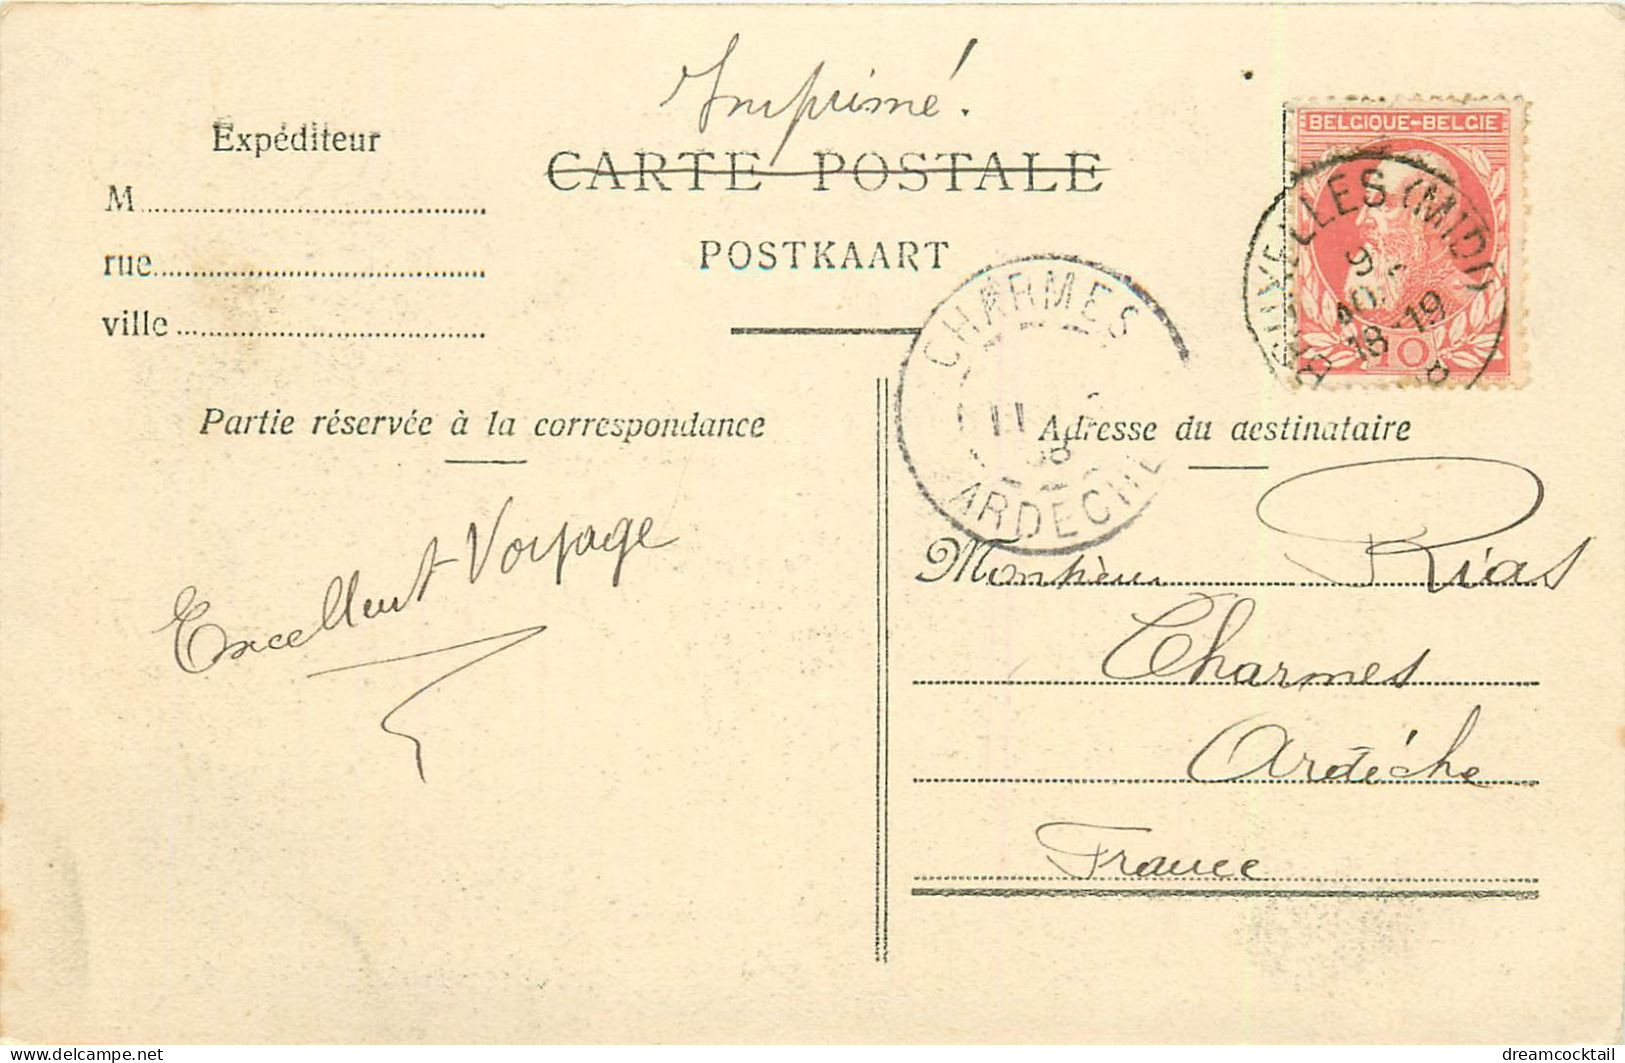 Imprimé.
Expéditeur
CARTE POSTALE
M
rue
ville
POSTKAART
BELGIQUE-BELGIE
10
BRUXELLES (MIDI)
18-19
CHARMES
11
ARDECHE
Partie réservée à la correspondance
Adresse du destinataire
Excellent Voyage
Monsieur Rias
Charmes
Ardèche
France
delcampe.net
dreamcocktail